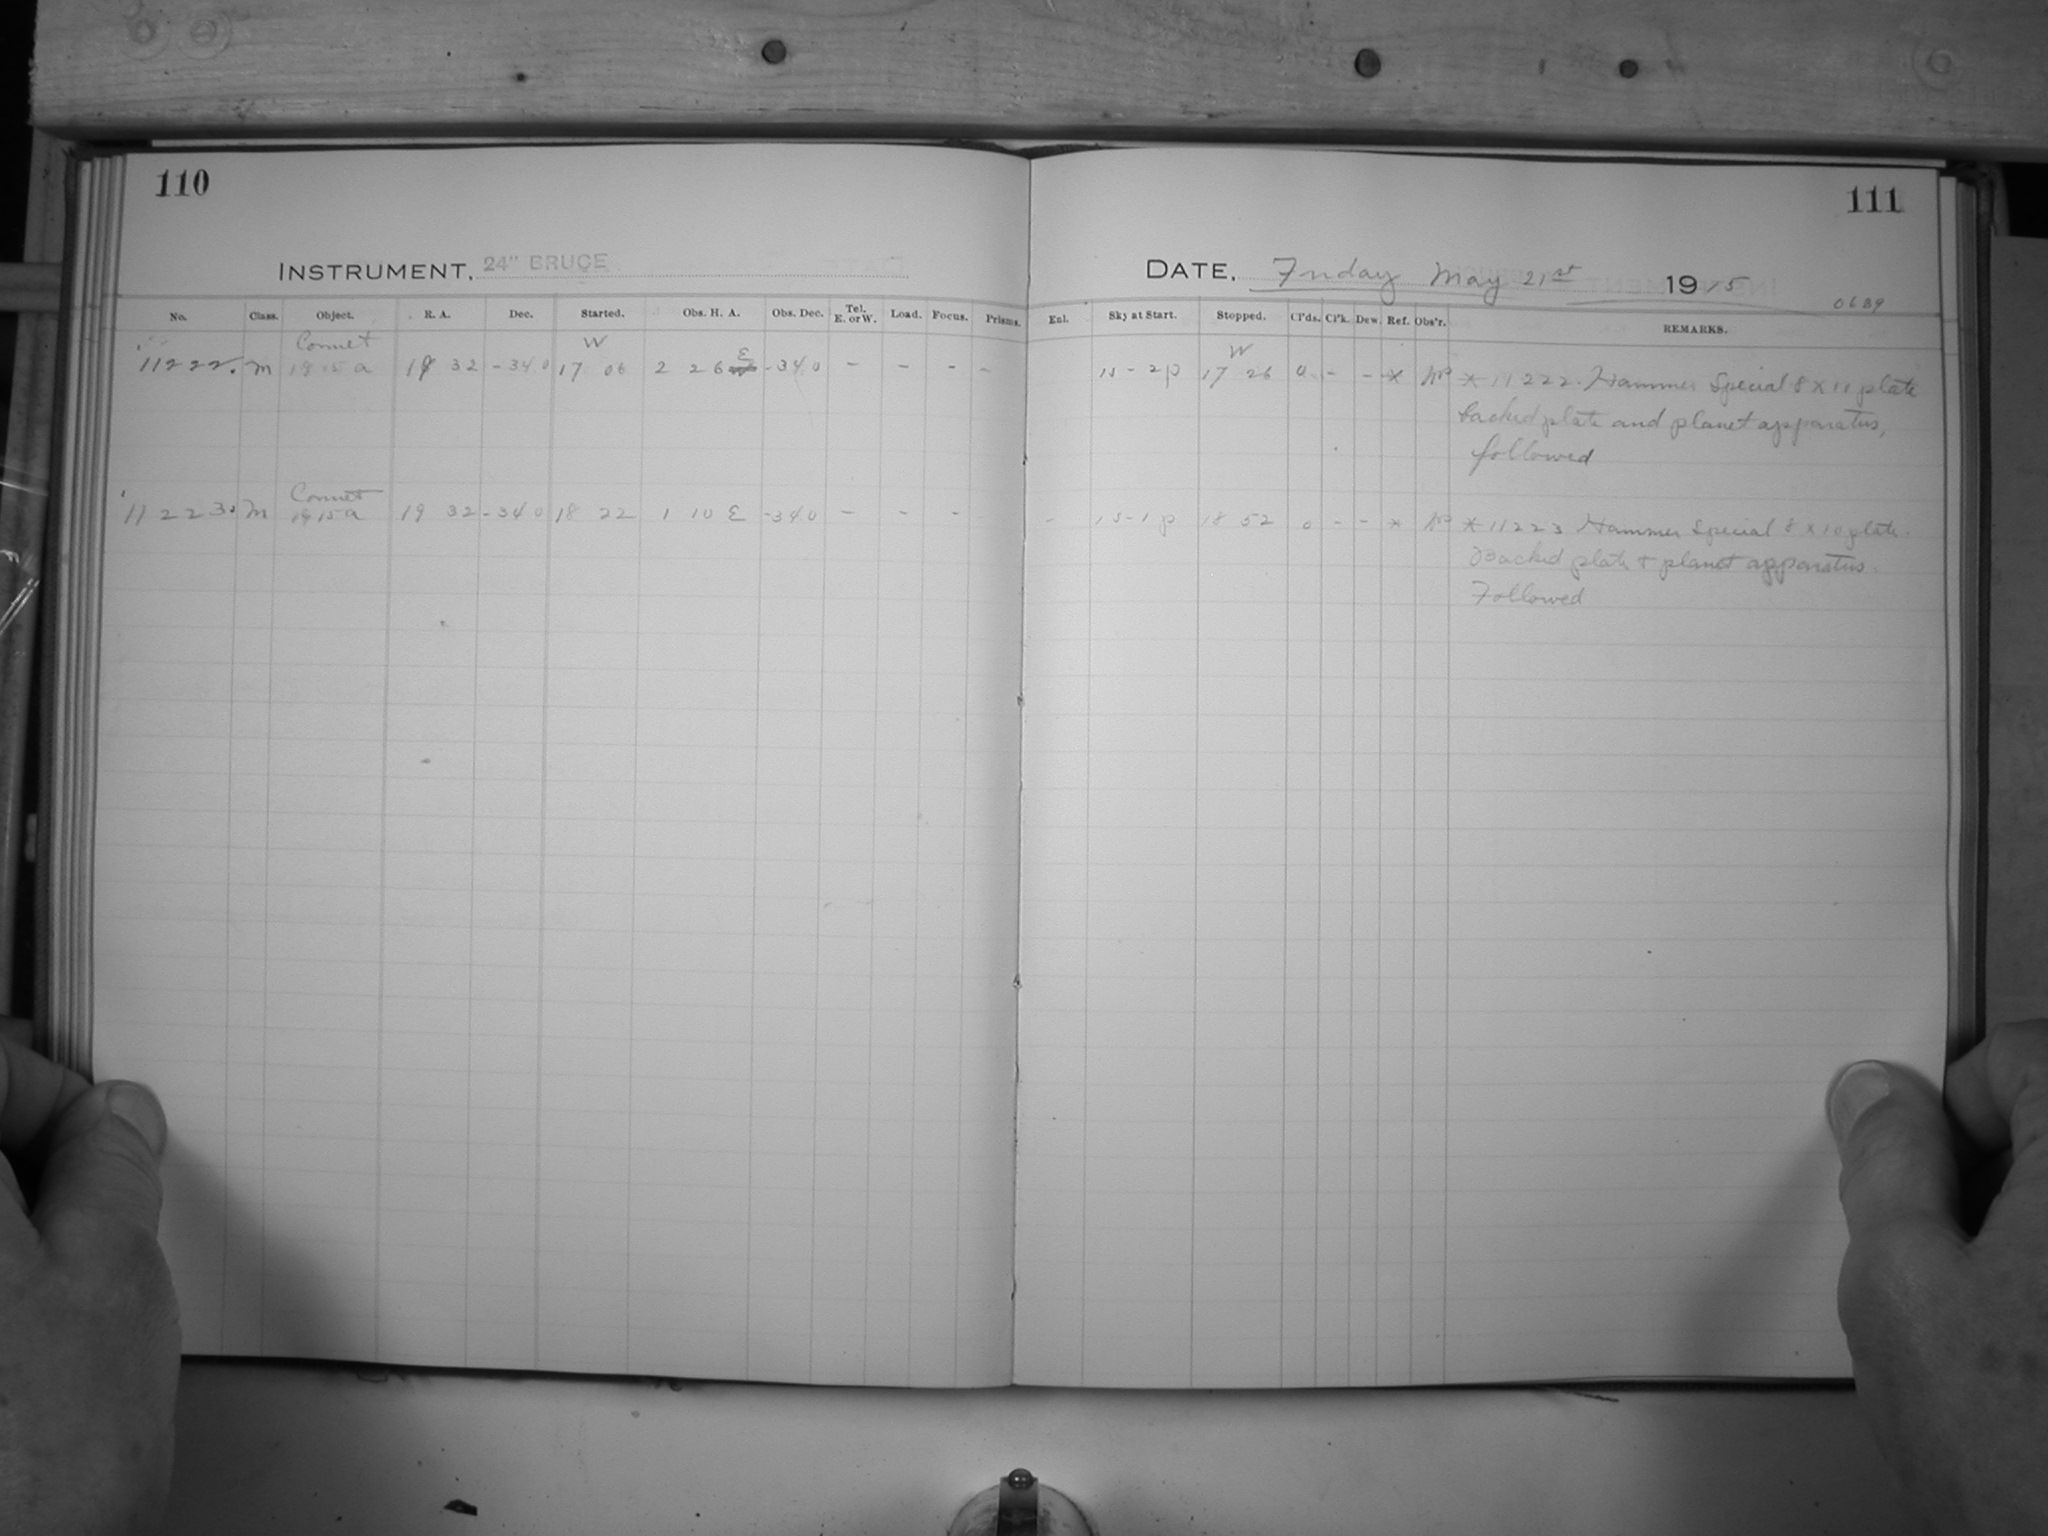 110
111
INSTRUMENT, 24" BRUCE
DATE, Friday May 21st 1915
0639
No. Class. Object. R. A. Dec. Started. Obs. H. A. Obs. Dec. Tel. E. or W. Load. Focus. Prisms. Enl. Sky at Start. Stopped. Cl'ds. Cl'k. Dew. Ref. Obs'r. REMARKS.
Comet W E W
11222. M 1915 a 19 32 -34 0 17 06 2 26 -34 0 - - - - 15 - 2p 17 26 0 - - * * 11222. Hammer Special 8 x 11 plate
backed plate and planet apparatus,
followed
Comet
11223. M 1915 a 19 32 -34 0 18 22 1 10 E -34 0 - - - - 15 - 1p 18 52 0 - - * * 11223 Hammer Special 8 x 10 plate.
Backed plate & planet apparatus.
Followed